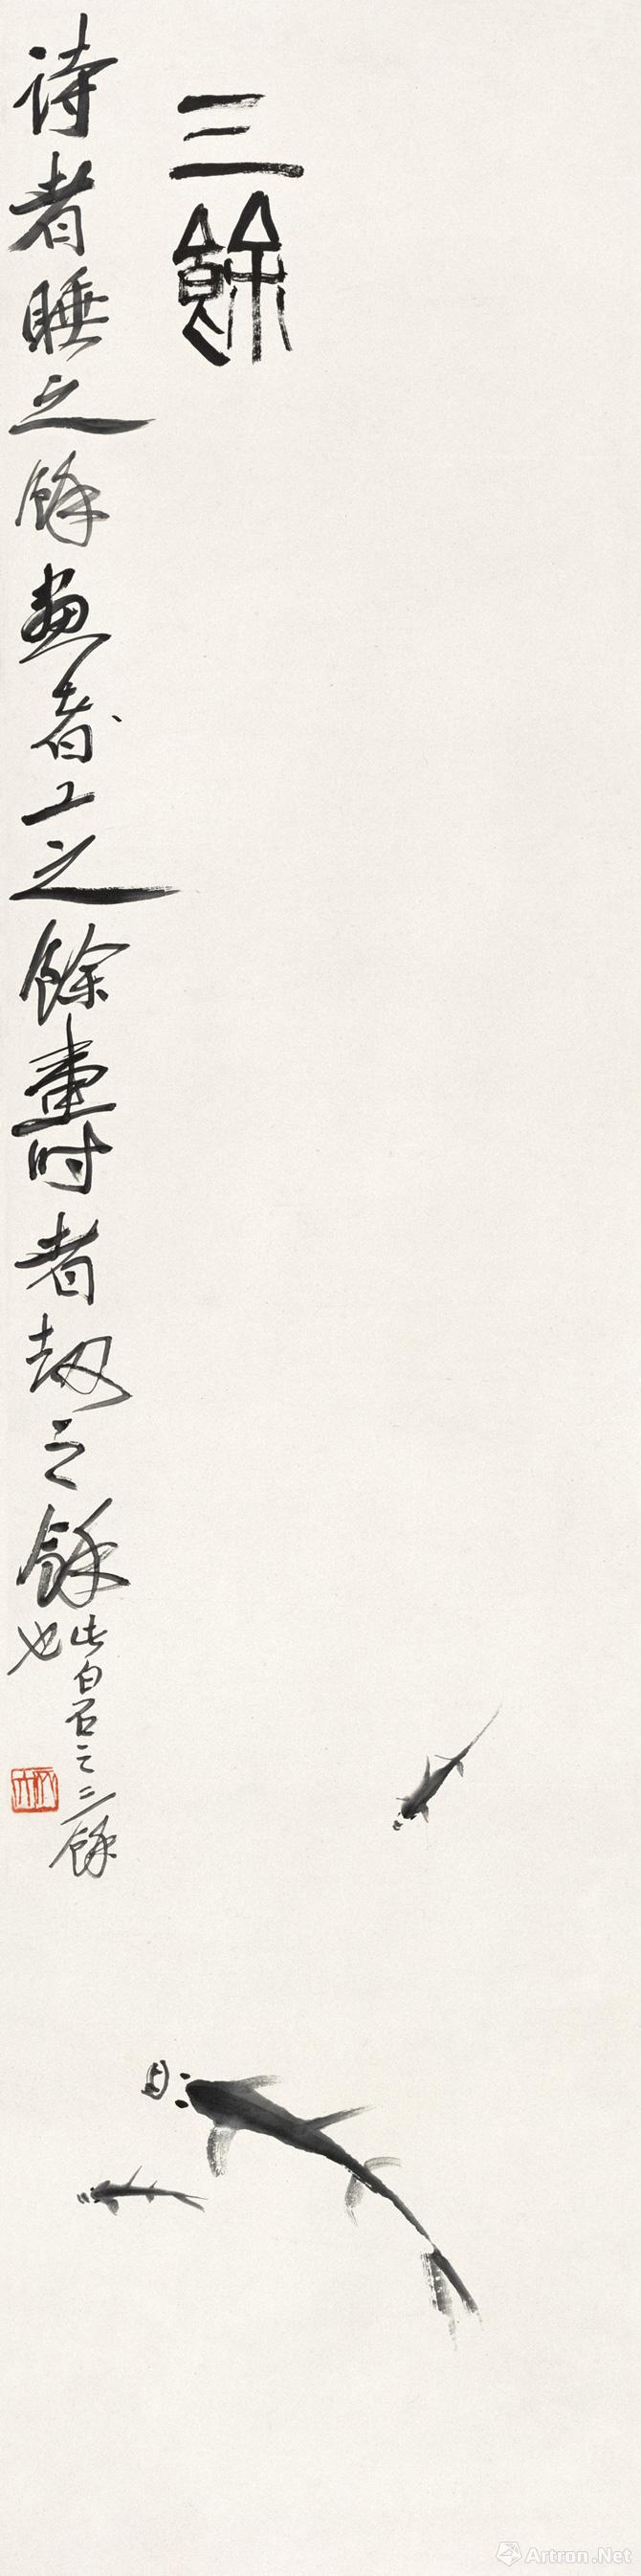 三餘
詩者睡之餘畫者工之餘壽者劫之餘
此白石之三餘
也
Artron.Net